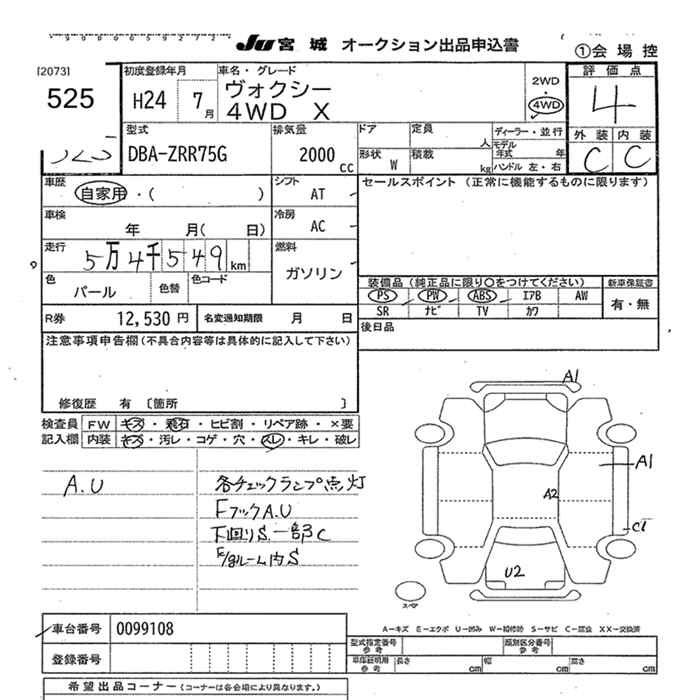 JU 宮城 オークション出品申込書
①会場控
[2073]
525
初度登録年月
H24 7月
車名・グレード
ヴォクシー
4WD X
2WD
・
4WD
評価点
4
外装 内装
C C
525
型式
DBA-ZRR75G
排気量
2000 cc
ドア
定員 人
形状 W
積載 kg
ディーラー・並行
モデル年式 年
ハンドル 左・右
車歴
自家用・( )
シフト
AT
セールスポイント (正常に機能するものに限ります)
車検
年 月( 日)
冷房
AC
走行
5万4千549km
燃料
ガソリン
色
パール
色替
色コード
装備品 (純正品に限り○をつけてください)
新車保証書
PS PW ABS エアB AW
有・無
SR ナビ TV カワ
R券 12,530円
名変通知期限 月 日
後日品
注意事項申告欄(不具合内容等は具体的に記入して下さい)
修復歴 有 〔箇所 〕
検査員 FW キズ・飛石・ヒビ割・リペア跡・×要
記入欄 内装 キズ・汚レ・コゲ・穴・スレ・キレ・破レ
A.U
各チェックランプ点灯
FフックA.U
下回りS.一部C
E/gルーム内S
A1
A1
A2
C1
U2
スペア
A−キズ E−エクボ U−凹み W−補修跡 S−サビ C−腐食 XX−交換済
車台番号 0099108
登録番号
型式指定番号 参考
類別区分番号 参考
車庫証明用 参考
長さ cm
幅 cm
高さ cm
希望出品コーナー (コーナーは各会場により異なります。)